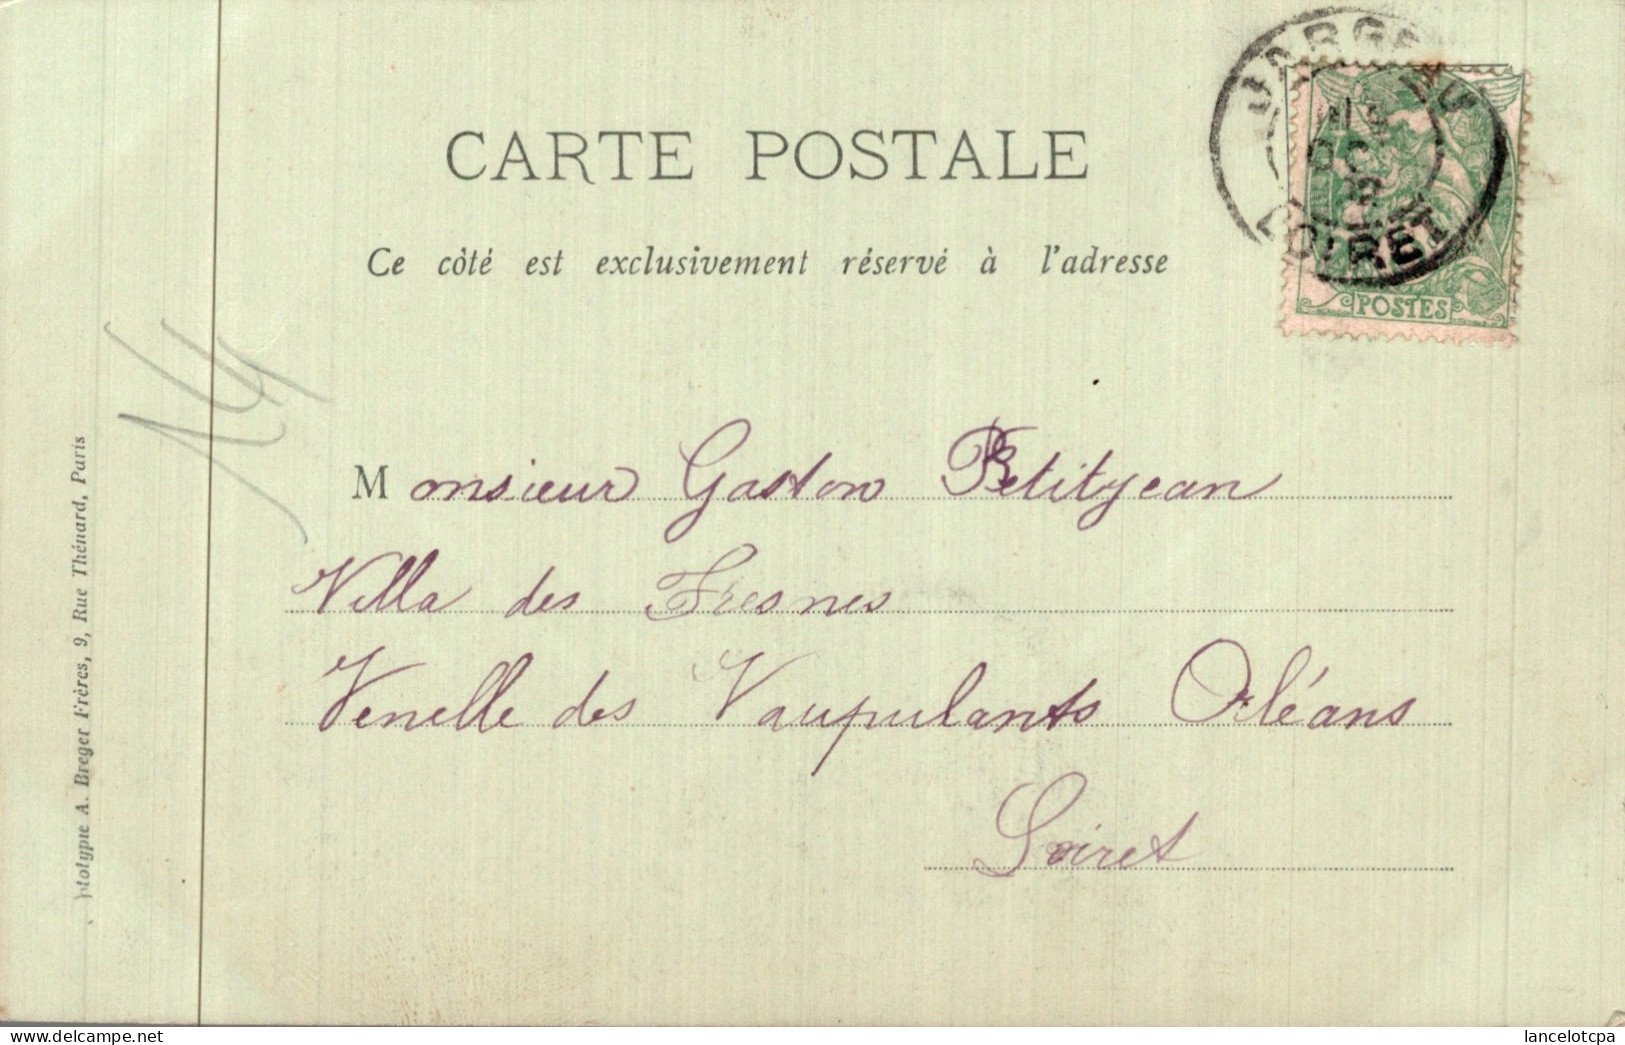 CARTE POSTALE
Ce côté est exclusivement réservé à l'adresse
LOIRET
POSTES
14
Monsieur Gaston Petitjean
Villa des Fresnes
Venelle des Vaupulants Orléans
Loiret
A. Breger Frères, 9, Rue Thénard, Paris
lancelotcpa